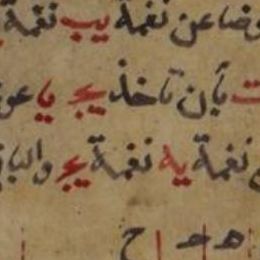 وضا عن نغمة يب نغمة
بأن تأخذ يج يا عو
نغمة يه نغمة يج والبا
ح ه